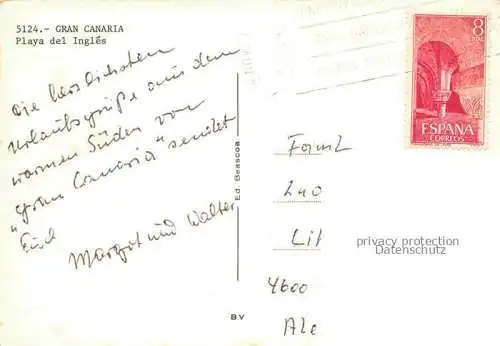 5124.- GRAN CANARIA
Playa del Inglés
Die herzlichsten
Urlaubsgrüße aus dem
warmen Süden von
"Gran Canaria" sendet
Euch
Margot und Walter
Ed. Beascoa
BV
8
PTAS
ESPAÑA
CORREOS
Faml
240
Lit
4600
Ale
privacy protection
Datenschutz